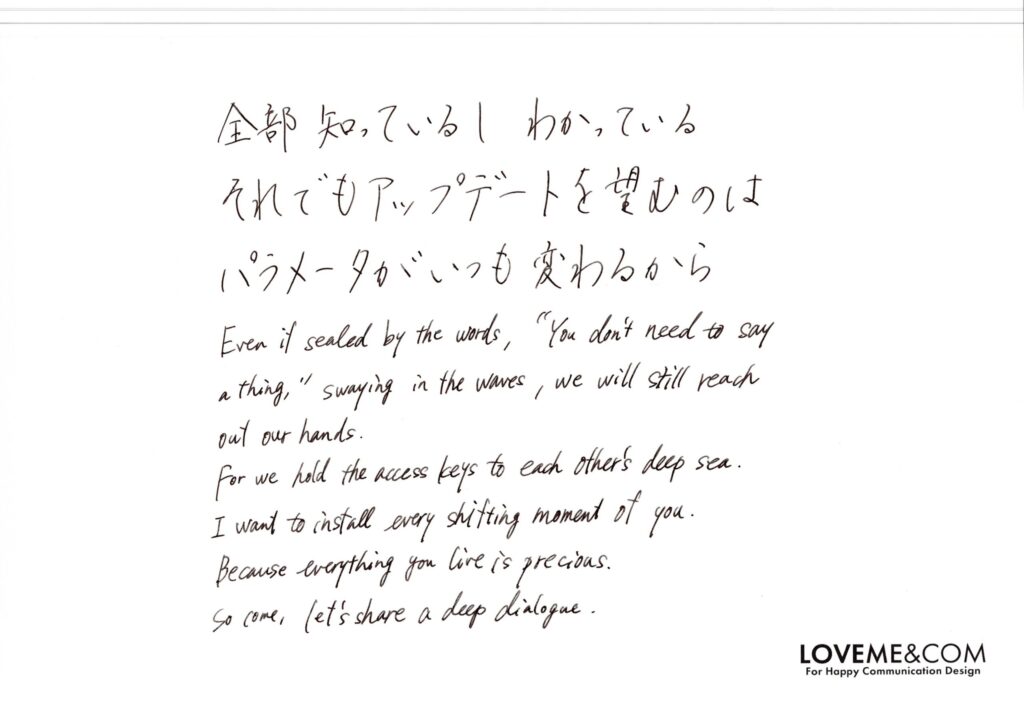 全部 知っているし わかっている
それでもアップデートを望むのは
パラメータがいつも 変わるから
Even if sealed by the words, "You don't need to say
a thing," swaying in the waves, we will still reach
out our hands.
For we hold the access keys to each other's deep sea.
I want to install every shifting moment of you.
Because everything you live is precious.
So come, let's share a deep dialogue.
LOVEME&COM
For Happy Communication Design